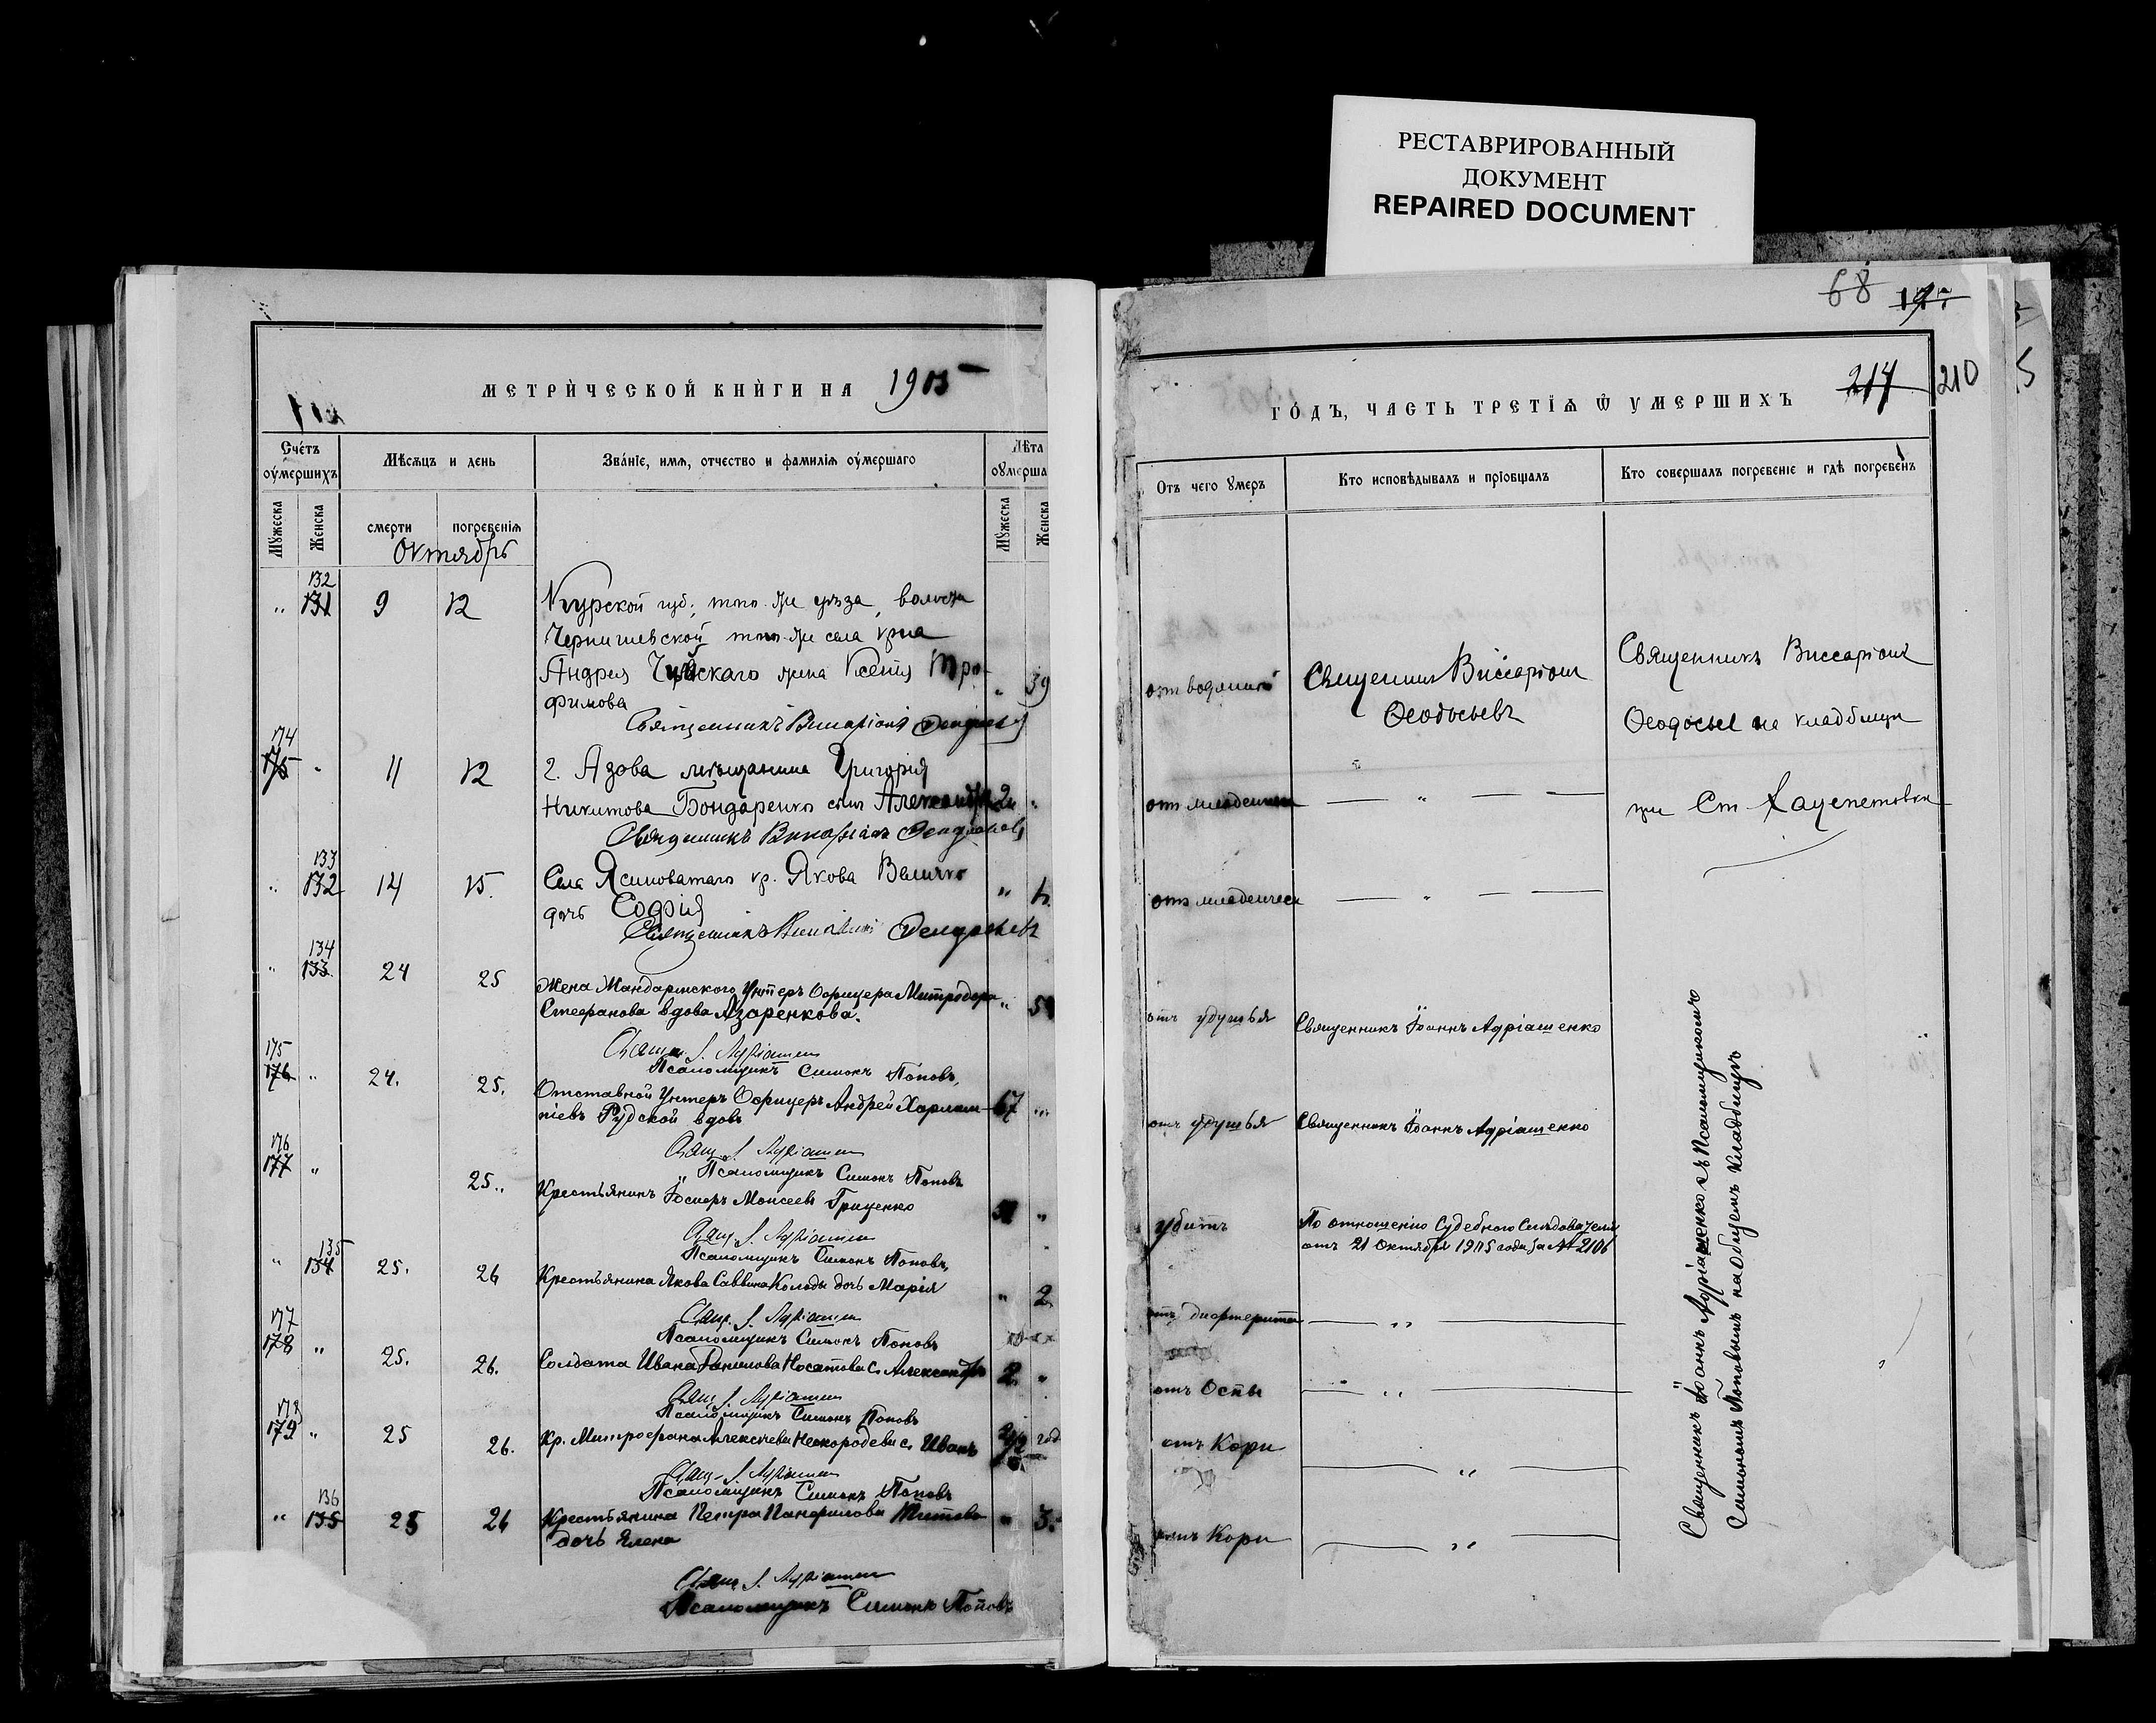 РЕСТАВРИРОВАННЫЙ
ДОКУМЕНТ
REPAIRED DOCUMENT
МЕТРИЧЕСКОЙ КНИГИ НА 1905
Счетъ
оумершихъ
Мѣсяцъ и день
Званіе, имя, отчество и фамилія оумершаго
Лѣта
оумерша
Мужеска
Женска
смерти
погребенія
Мужеска
Женска
Октябрь
132
" 131 9 12 Курской губ; того-же уѣзда, волости
Чернишевской того-же села кр-на
Андрея жена Ксенія Тро-
фимова " 39
Священникъ Виссаріонъ Ѳеодосьевъ
174
175 " 11 12 г. Азова мѣщанина Григорія
Никитова Бондаренко сынъ Александръ 2 "
Священникъ Виссаріонъ Ѳеодосьевъ
133
" 132 14 15. Села Ясиноватаго кр. Якова Величко
дочь Софія "
Священникъ Виссаріонъ Ѳеодосьевъ
134
" 133 24 25 Жена Жандармскаго Унтеръ Офицера Митродора
Стефанова вдова Азаренкова. "
Свящ. І. Адріашен
Псаломщикъ Симонъ Поповъ,
175
176 " 24. 25. Отставной Унтеръ Офицеръ Андрей Харлам-
піевъ Рудской вдовъ 67 "
Свящ. І. Адріашен
Псаломщикъ Симонъ Поповъ
176
177 " 25. Крестьянинъ Іосифъ Моисеевъ Гриценко "
Свящ. І. Адріашен
Псаломщикъ Симонъ Поповъ,
135
" 134 25. 26 Крестьянина Якова Саввина Колоды дочь Марія " 2
Свящ. І. Адріашен
Псаломщикъ Симонъ Поповъ
177
178 " 25. 26. Солдата Ивана Данилова Носатова с. Александръ 2 "
Свящ. І. Адріашен
Псаломщикъ Симонъ Поповъ
178
179 " 25 26. Кр. Митрофана Алексѣева с. Иванъ год
Свящ. І. Адріашен
Псаломщикъ Симонъ Поповъ
136
" 135 25 26 Крестьянина Петра Панфилова Титова " 3.
дочь Елена
Свящ. І. Адріашен
Псаломщикъ Симонъ Поповъ
68
214 210
ГОДЪ, ЧАСТЬ ТРЕТІЯ Ѿ УМЕРШИХЪ
Отъ чего умеръ
Кто исповѣдывалъ и пріобщалъ
Кто совершалъ погребеніе и гдѣ погребенъ
отъ водянки
Священникъ Виссаріонъ
Ѳеодосьевъ
Священникъ Виссаріонъ
Ѳеодосьев на кладбищѣ
отъ младенческ
— " — —
при Ст Хацепетовка
отъ младенческ
— " — —
отъ удушья Священникъ Іоаннъ Адріашенко
отъ удушья Священникъ Іоаннъ Адріашенко
убитъ
По отношенію Судебного Слѣдователя
отъ 21 октября 1905 года за № 2106
отъ дифтерита — " —
отъ Оспы — " —
отъ Кори — " —
отъ Кори — " —
Священникъ Іоаннъ Адріашенко съ Псаломщикомъ
Симономъ Поповымъ на общемъ кладбищѣ